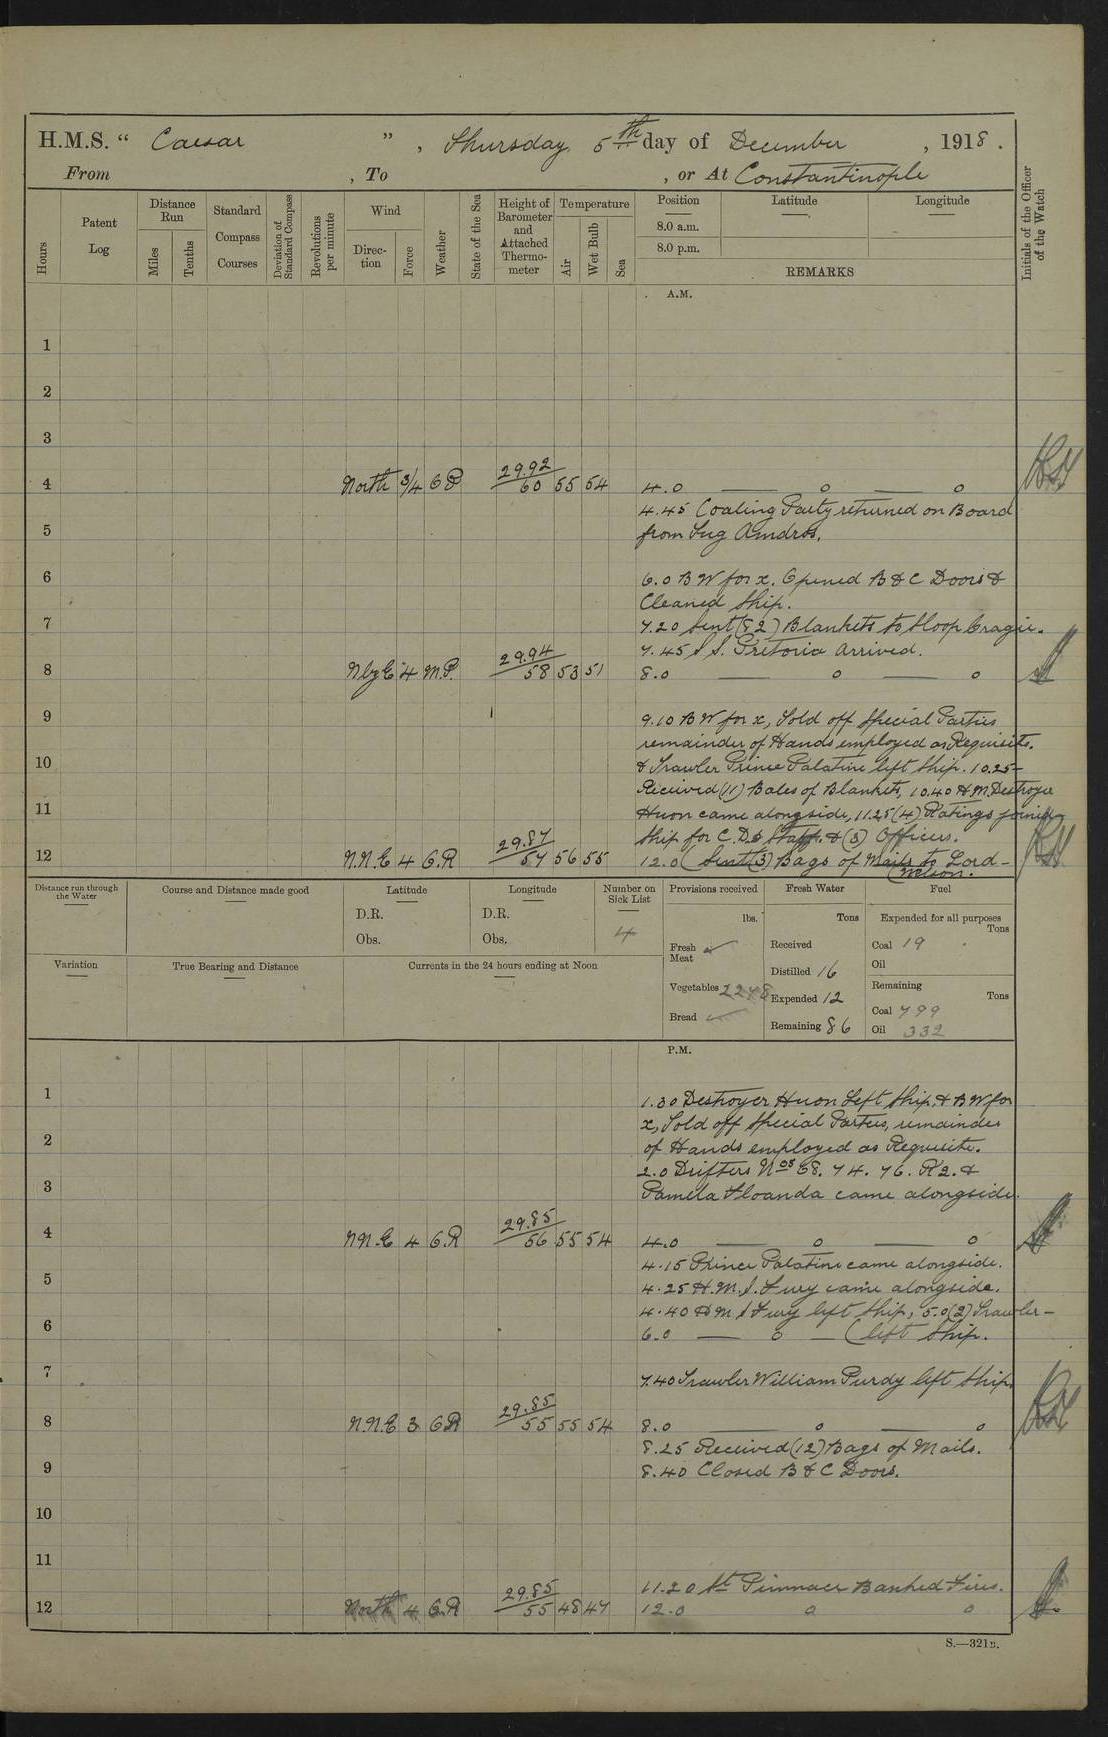 H.M.S. " Caesar " , Thursday 5th day of December , 1918 .
From , To , or At Constantinople
Hours
Patent Log
Distance Run
Miles
Tenths
Standard Compass Courses
Deviation of Standard Compass
Revolutions per minute
Wind
Direction
Force
Weather
State of the Sea
Height of Barometer and Attached Thermometer
Temperature
Air
Wet Bulb
Sea
Position
Latitude
Longitude
8.0 a.m.
8.0 p.m.
REMARKS
Initials of the Officer of the Watch
A.M.
1
2
3
4 North 3/4 29.92 60 55 54 4.0 — o — o
4.45 Coaling Party returned on Board
5 from Tug
6 6.0 B W for x. Opened B & C Doors &
Cleaned Ship.
7 7.20 Sent (82) Blankets to Sloop
7.45 S.S. Pretoria arrived.
8 N by E 4 29.94 58 53 51 8.0 — o — o
9 9.10 B W for x, Told off Special Parties
remainder of Hands employed as Requisite.
10 & Trawler Prince Palatine left Ship. 10.25 –
Received (11) Bales of Blankets, 10.40 H.M. Destroyer
11 Huon came alongside, 11.25 (4) Ratings joined
Ship for Staff. & (3) Officers.
12 N.N.E 4 C.R 29.87 57 56 55 12.0 (Sent (3) Bags of Mails to Lord –
(Nelson.
Distance run through the Water
Course and Distance made good
Latitude
D.R.
Obs.
Longitude
D.R.
Obs.
Number on Sick List
4
Provisions received
lbs.
Fresh Meat
Vegetables 2248
Bread
Fresh Water
Tons
Received
Distilled 16
Expended 12
Remaining 86
Fuel
Expended for all purposes
Tons
Coal 19
Oil
Remaining
Tons
Coal 799
Oil 332
Variation
True Bearing and Distance
Currents in the 24 hours ending at Noon
P.M.
1 1.30 Destroyer Huon Left Ship, & B W for
x, Told off Special Parties, remainder
2 of Hands employed as Requisite.
2.0 Drifters Nos 68. 74. 76. R2. &
3 Pamela came alongside.
4 N.N.E 4 C.R 29.85 56 55 54 4.0 — o — o
4.15 Prince Palatine came alongside.
5 4.25 H.M.S. Fury came alongside.
4.40 H M S Fury left Ship, 5.0 (2) Trawler –
6 6.0 — o — (left Ship.
7 7.40 Trawler William Purdy left Ship.
8 N.N.E 3 C.R 29.85 55 55 54 8.0 — o — o
8.25 Received (12) Bags of Mails.
9 8.40 Closed B & C Doors.
10
11
11.20 St Pinnace Banked Fires.
12 North 4 C.R 29.85 55 48 47 12.0 o o
S.—321B.